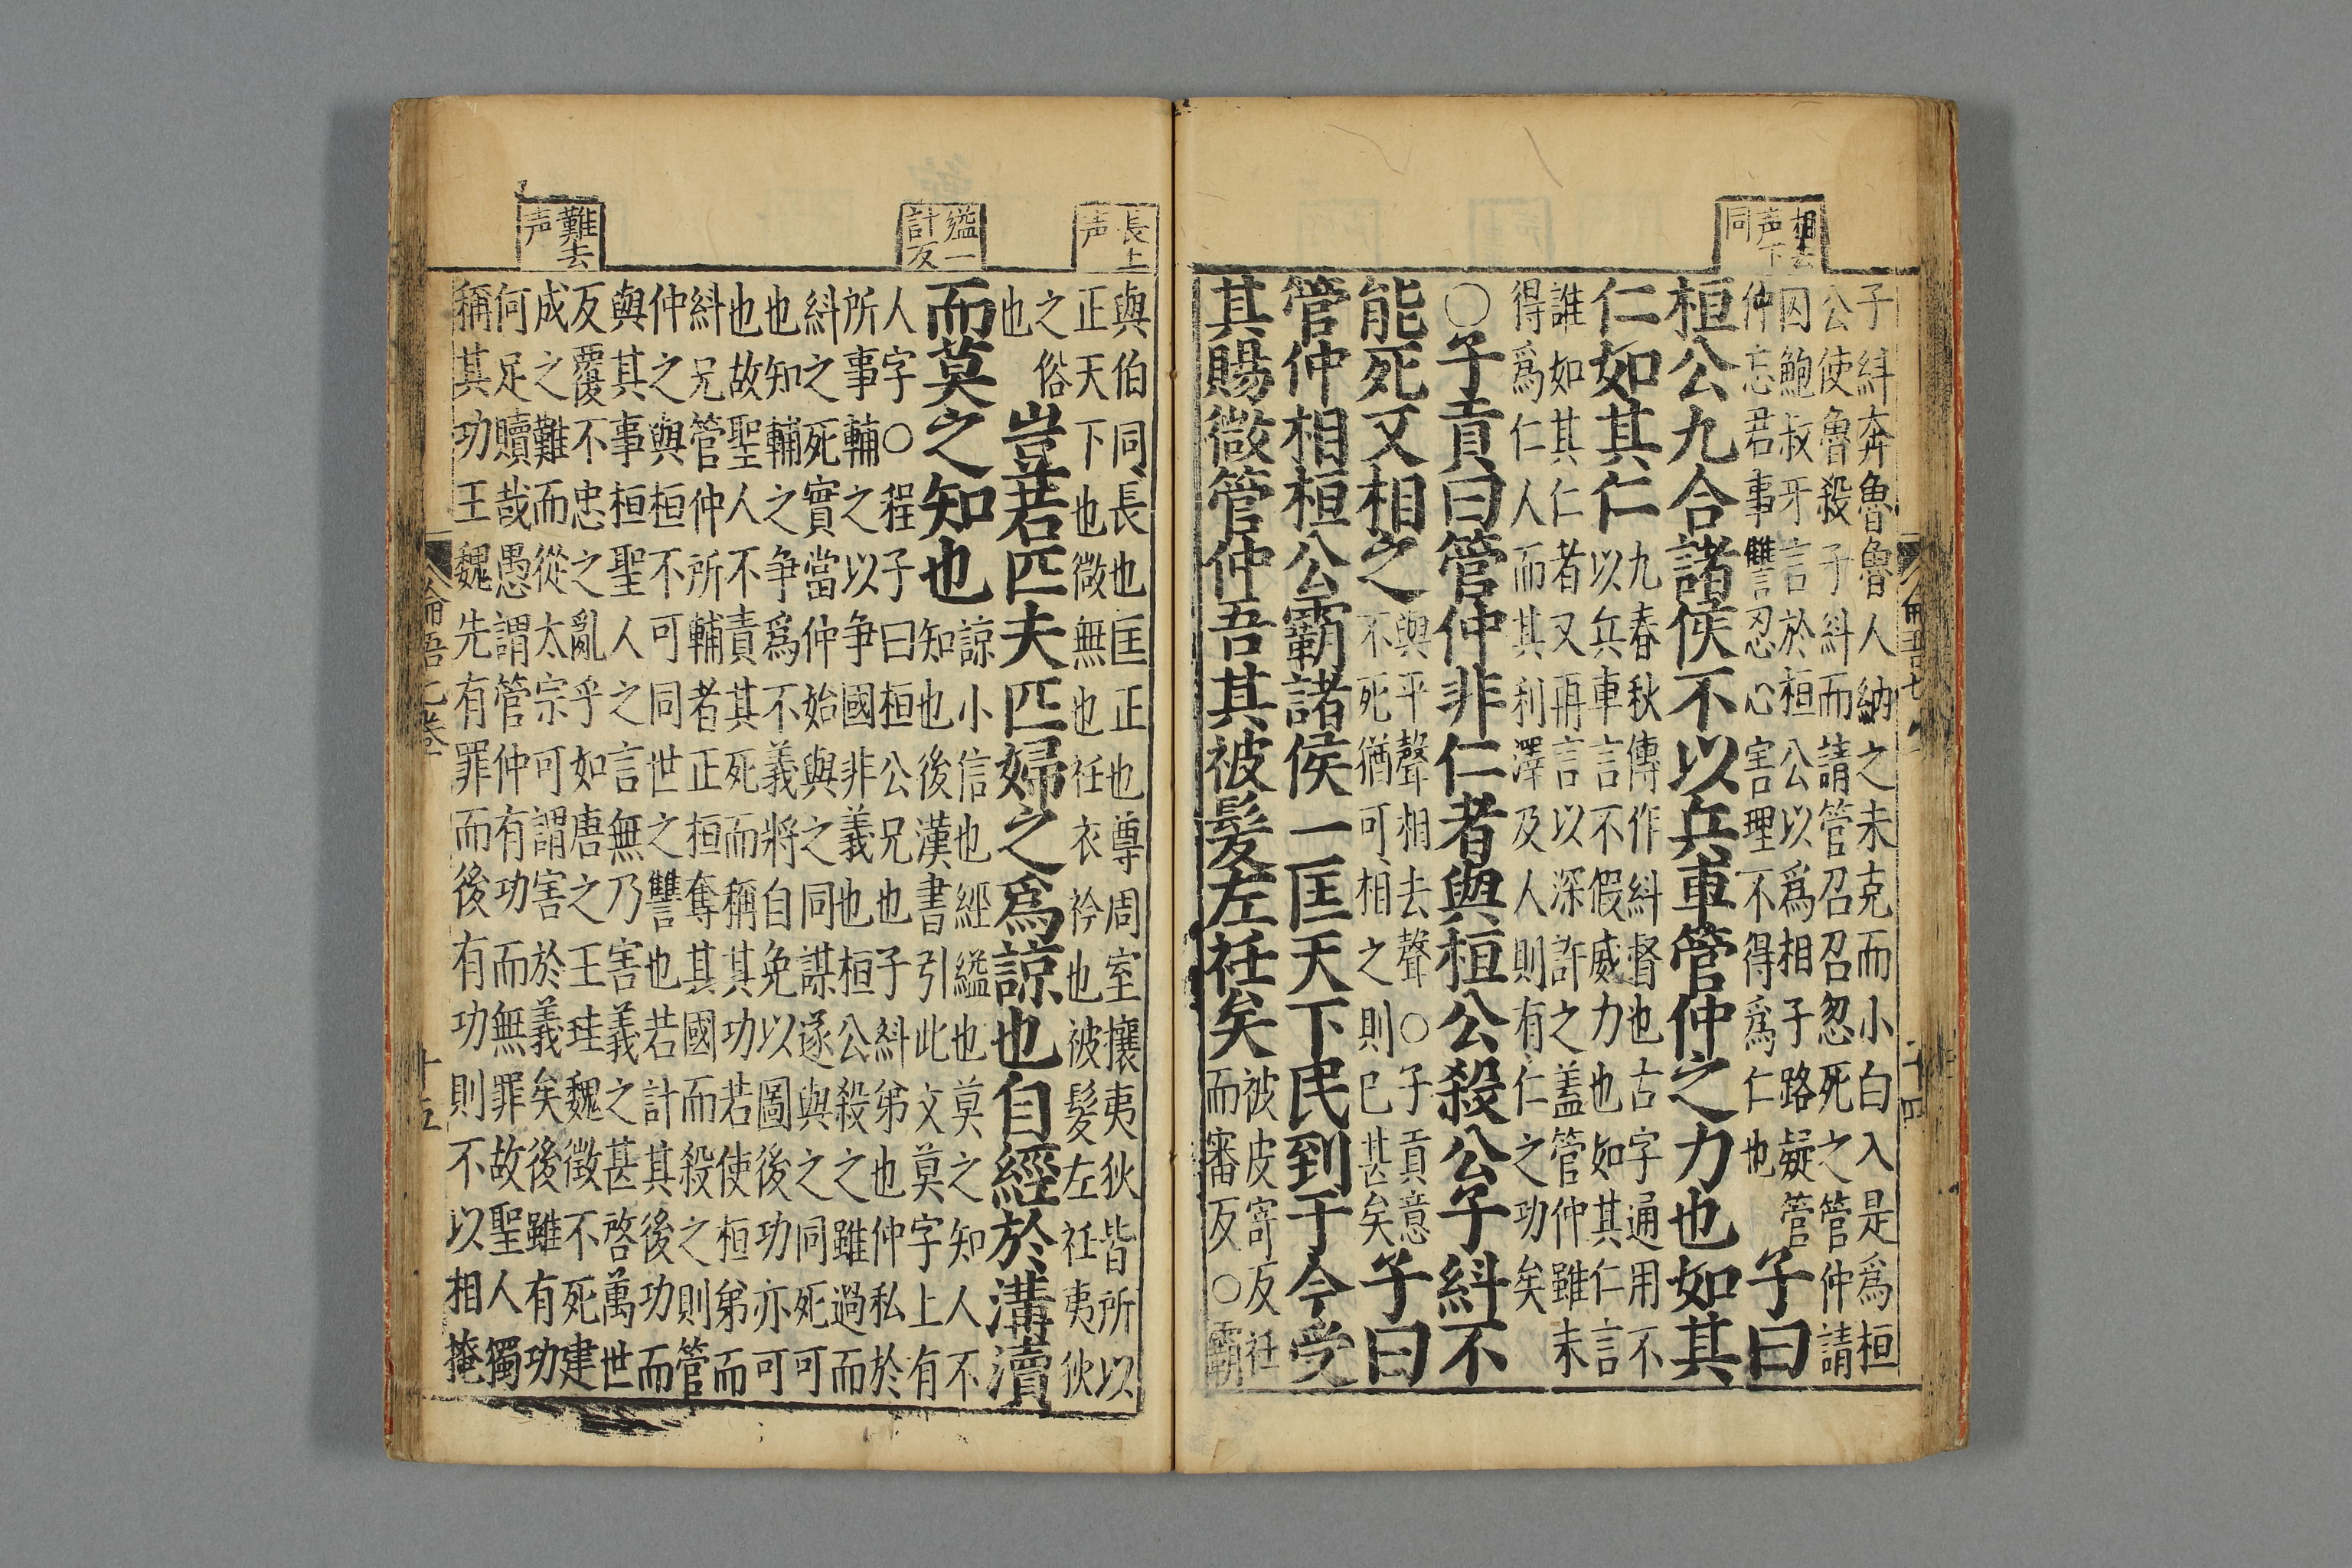 相去
声下
同
子糾奔魯魯人納之未克而小白入是爲桓
公使魯殺子糾而請管召召忽死之管仲請
囚鮑叔牙言於桓公以爲相子路疑管
仲忘君事讐忍心害理不得爲仁也
子曰
桓公九合諸侯不以兵車管仲之力也如其
仁如其仁
九春秋傳作糾督也古字通用不
以兵車言不假威力也如其仁言
誰如其仁者又再言以深許之盖管仲雖未
得爲仁人而其利澤及人則有仁之功矣
○子貢曰管仲非仁者與桓公殺公子糾不
能死又相之
與平聲相去聲○子貢意
不死猶可相之則已甚矣
子曰
管仲相桓公霸諸侯一匡天下民到于今受
其賜微管仲吾其被髮左衽矣
被皮寄反衽
而審反○霸
論語七卷
十四
長上
声
縊一
計反
難去
声
與伯同長也匡正也尊周室攘夷狄皆所以
正天下也微無也衽衣衿也被髮左衽夷狄
之俗
也
豈若匹夫匹婦之爲諒也自經於溝瀆
而莫之知也
諒小信也經縊也莫之知人不
知也後漢書引此文莫字上有
人字○程子曰桓公兄也子糾弟也仲私於
所事輔之以争國非義也桓公殺之雖過而
糾之死實當仲始與之同謀遂與之同死可
也知輔之争爲不義將自免以圖後功亦可
也故聖人不責其死而稱其功若使桓弟而
糾兄管仲所輔者正桓奪其國而殺之則管
仲之與桓不可同世之讐也若計其後功而
與其事桓聖人之言無乃害義之甚啓萬世
反覆不忠之亂乎如唐之王珪魏徵不死建
成之難而從太宗可謂害於義矣後雖有功
何足贖哉愚謂管仲有功而無罪故聖人獨
稱其功王魏先有罪而後有功則不以相掩
論語七卷
十五